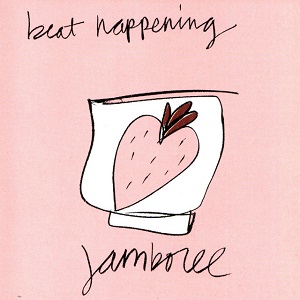 beat happening
jamboree